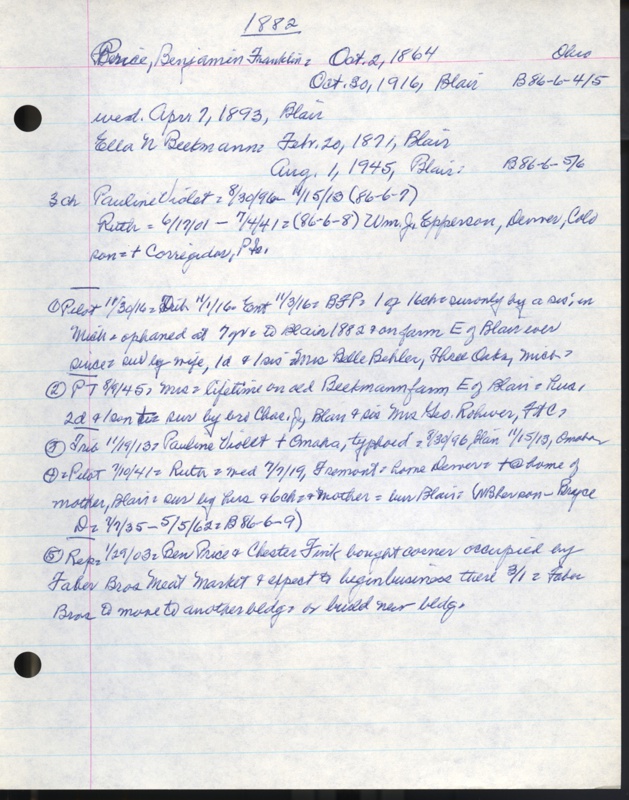 1882
Price, Benjamin Franklin: Oct. 2, 1864 Ohio
Oct. 30, 1916, Blair B86-6-4/5
wed. Apr. 7, 1893, Blair
Ella N Beekmann: Febr. 20, 1871, Blair
Aug. 1, 1945, Blair: B86-6-5/6
3 ch Pauline Violet = 8/30/96 - 11/15/13 (86-6-7)
Ruth = 6/17/01 - 7/4/41 = (86-6-8) Wm. J. Epperson, Denver, Colo
son = + Corregidor, P.Is.
① Pilot 11/30/16 = Trib 11/1/16 = Ent 11/3/16 = BFP = 1 of 16 ch = sur only by a sis, in
Mich = orphaned at 7 yr = to Blair 1882 & on farm E of Blair ever
since = sur by wife, 1d & 1 sis = Mrs Belle Behler, Three Oaks, Mich =
② PT 8/9/45 = Mrs = lifetime on old Beekmann farm E of Blair = Hus,
2d & 1 son sur by bro Chas. J, Blair & sis Mrs Geo. Rohwer, Ft C =
③ Trib 11/19/13 = Pauline Violet + Omaha, typhoid = 8/30/96, Blair 11/15/13, Omaha
④ = Pilot 7/10/41 = Ruth = wed 7/7/19, Fremont = home Denver = + @ home of
mother, Blair = sur by hus & 6 ch = & mother = bur Blair = Bryce
D = 7/7/35 - 5/5/62 = B86-6-9)
⑤ Rep = 1/29/03 = Ben Price & Chester Fink bought corner occupied by
Faber Bros Meat Market & expect to begin business there 3/1 = Faber
Bros to move to another bldg = or build new bldg.